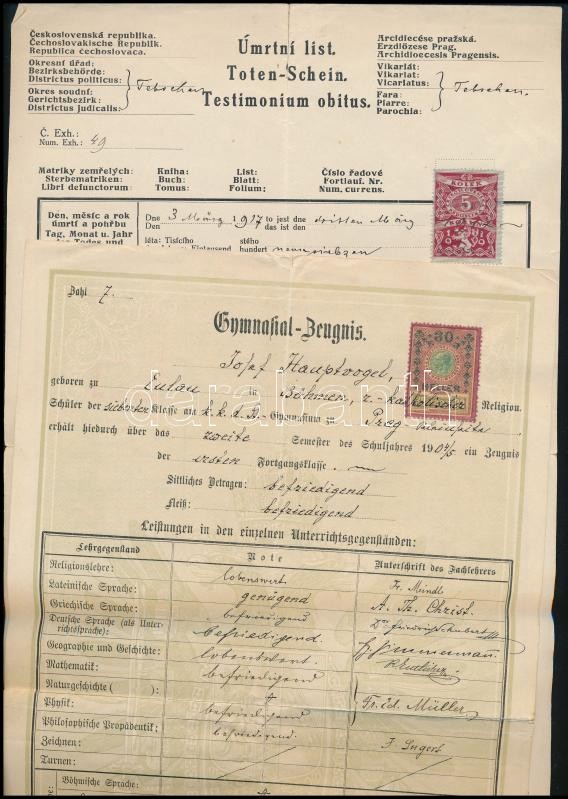 Československá republika.
Čechoslovakische Republik.
Republica čechoslovaca.
Okresní úřad:
Bezirksbehörde:
Districtus politicus:
Okres soudní:
Gerichtsbezirk:
Districtus judicalis:
Tetschen
Úmrtní list.
Toten-Schein.
Testimonium obitus.
Arcidiecése pražská.
Erzdiözese Prag.
Archidioecesis Pragensis.
Vikariát:
Vikariat:
Vicariatus:
Fara:
Pfarre:
Parochia:
Tetschen.
Č. Exh.:
Num. Exh.: 49
Matriky zemřelých: Kniha: List: Číslo řadové
Sterbematriken: Buch: Blatt: Fortlauf. Nr.
Libri defunctorum: Tomus: Folium: Num. currens.
KOLEK
5
Den, měsíc a rok
úmrtí a pohřbu
Tag, Monat u. Jahr
des Todes und
Dne 3 März 1917 to jest dne dritten März
Den das ist den
léta: Tisícího stého
Eintausend hundert neunzehn
Zahl 7.
Gymnasial-Zeugnis.
30
HELLER
Josef Hauptvogel,
geboren zu Eulau in Böhmen, r. katholischer Religion.
Schüler der siebenten Klasse am k. k. d. Gymnasium zu Prag
erhält hiedurch über das zweite Semester des Schuljahres 1904/5 ein Zeugnis
der ersten Fortgangsklasse.
Sittliches Betragen: befriedigend
Fleiß: befriedigend
Leistungen in den einzelnen Unterrichtsgegenständen:
Lehrgegenstand Note Unterschrift des Fachlehrers
Religionslehre: lobenswert
Lateinische Sprache: genügend A. Th. Christ.
Griechische Sprache: befriedigend
Deutsche Sprache (als Unterrichtssprache): befriedigend.
Geographie und Geschichte: lobenswert
Mathematik: befriedigend
Naturgeschichte ( ):
Physik: befriedigend Müller
Philosophische Propädeutik: befriedigend.
Zeichnen:
Turnen:
Böhmische Sprache:
darabanth